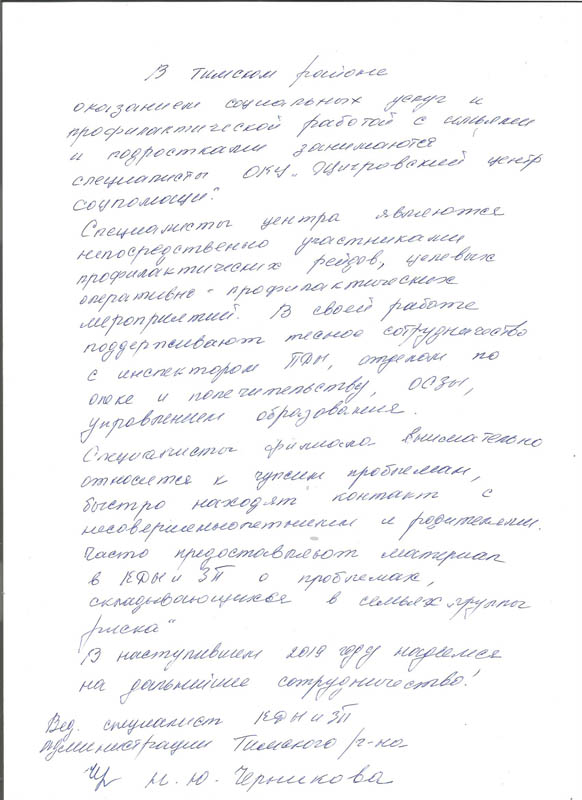 В Тимском районе
оказанием социальных услуг и
профилактической работой с семьями
и подростками занимаются
специалисты ОКУ „Щигровский центр
соцпомощи".
Специалисты центра являются
непосредственно участниками
профилактических рейдов, целевых
оперативно-профилактических
мероприятий. В своей работе
поддерживают тесное сотрудничество
с инспектором ПДН, отделом по
опеке и попечительству, ОСЗН,
управлением образования.
Специалисты филиала внимательно
относятся к чужим проблемам,
быстро находят контакт с
несовершеннолетними и родителями.
Часто предоставляют материал
в КДН и ЗП о проблемах,
складывающихся в семьях „группы
риска"
В наступившем 2019 году надеемся
на дальнейшее сотрудничество!
Вед. специалист КДН и ЗП
администрации Тимского р-на
М.Ю. Черникова